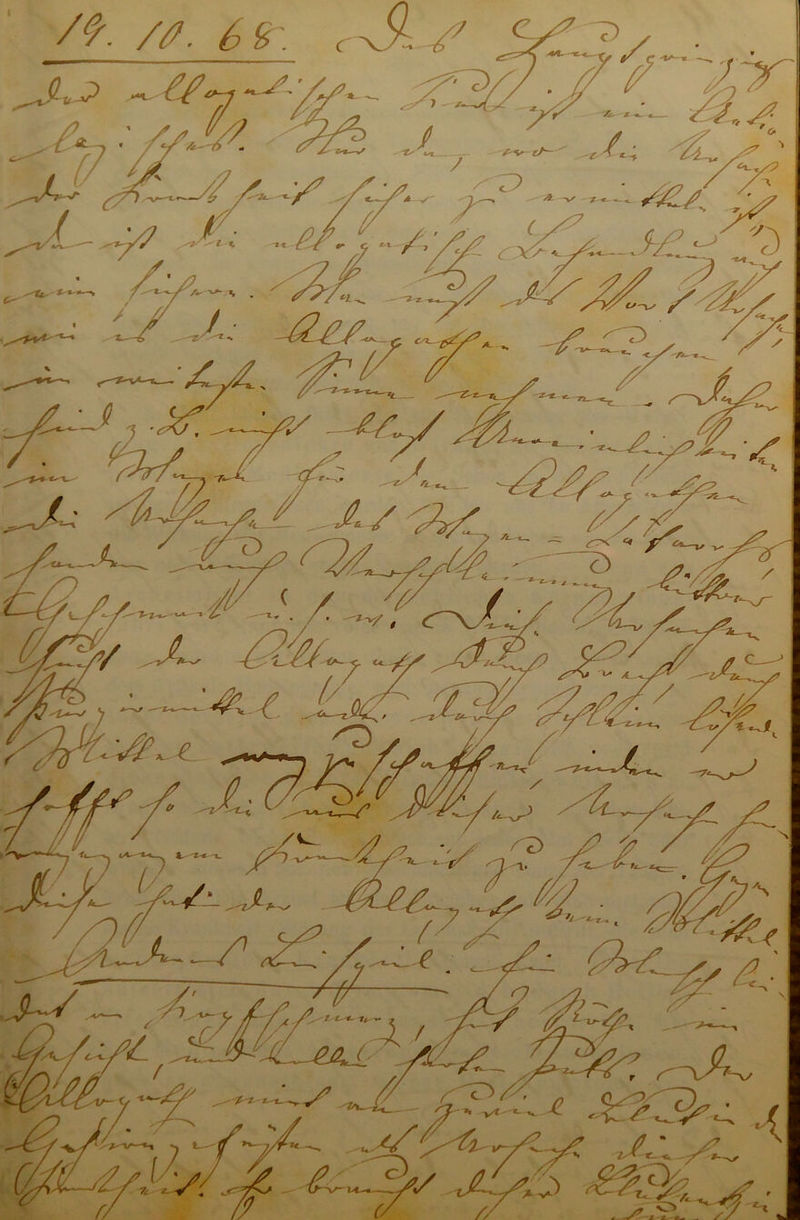 19. 10. 68. Das Hauptprinzip
der allopatischen Kur ist ein Aetio-
logisches. Nur da, wo die Ursach
der Krankheit sicher zu ermitteln ist,
da ist die allopatisch Behandlung auch
eine sichere. Man muß das Wort Ursache,
wie es die Allopathen brauchen,
im weitesten Sinne nehmen. Daher
sind z. B. nicht bloß Unreinlichkeiten
im Magen für den Allopathen
die Ursachen des Magen-Catarrhs,
sondern auch Verschleimung, bittrer
Geschmack u. s. w. Diese Ursachen
sucht der Allopath durch Brech, durch
Purgirmittel oder durch Schleim lösende
Mittel weg zu schaffen, indem er
hofft so die aus dieser Ursache her-
vorgegangene Krankheit zu heben. Gegen
diese hat der Allopath kein Mittel.
Anderes Beispiel. Ein Mensch lei-
det an Kopfschmerz, hat Röthe im
Gesicht, und vollen harten Puls. Der
Allopath nimt an zuviel Blut in den
Gehirngefäßen als Ursache dieser
Krankheit. Er braucht daher Blutentzie-